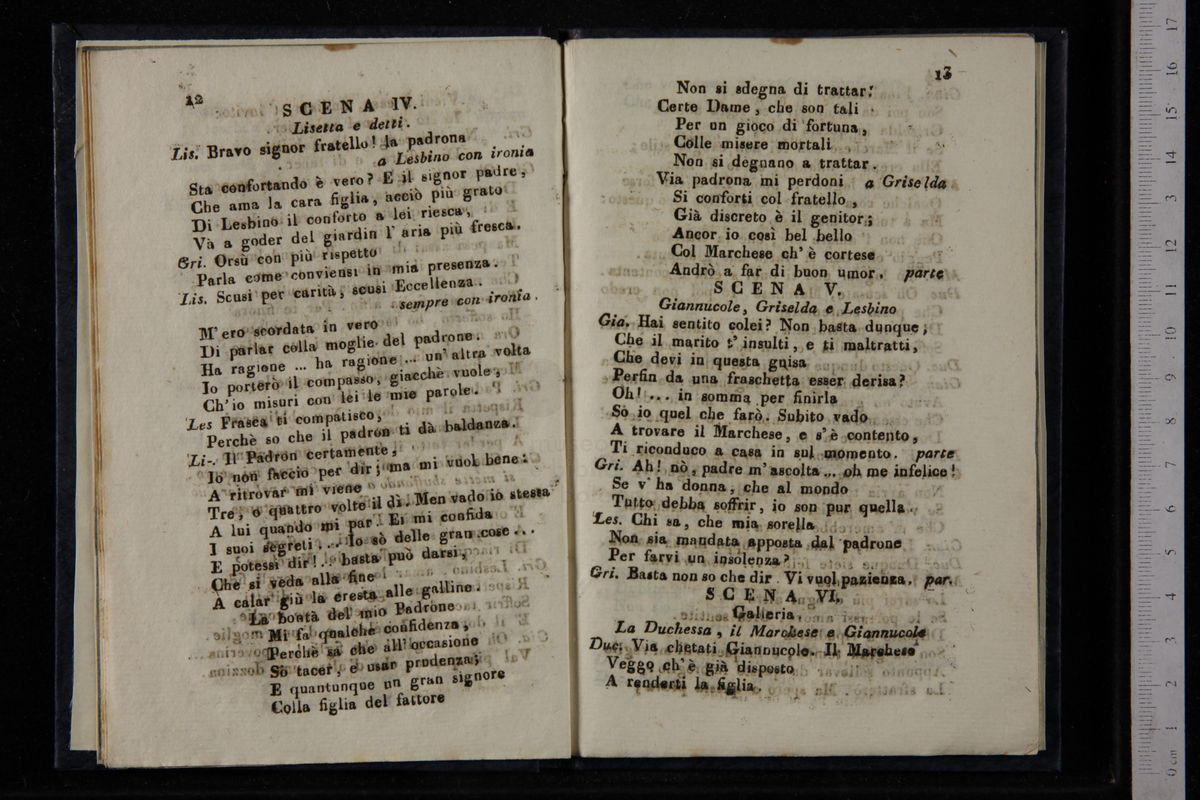 12
SCENA IV.
Lisetta e detti.
Lis. Bravo signor fratello! la padrona
a Lesbino con ironia
Sta confortando è vero? E il signor padre,
Che ama la cara figlia, acciò più grato
Di Lesbino il conforto a lei riesca,
Và a goder del giardin l'aria più fresca.
Gri. Orsù con più rispetto
Parla come conviensi in mia presenza.
Lis. Scusi per carità, scusi Eccellenza.
sempre con ironia.
M'ero scordata in vero
Di parlar colla moglie del padrone.
Ha ragione ... ha ragione ... un'altra volta
Io porterò il compasso, giacchè vuole,
Ch'io misuri con lei le mie parole.
Les Frasca ti compatisco,
Perchè so che il padron ti dà baldanza.
Li-. Il Padron certamente,
Io non faccio per dir; ma mi vuol bene:
A ritrovar mi viene
Tre, o quattro volte il dì. Men vado io stessa
A lui quando mi par. Ei mi confida
I suoi segreti ... Io sò delle gran cose ...
E potessi dir! .. basta può darsi,
Che si veda alla fine
A calar giù la cresta alle galline.
La bontà del mio Padrone
Mi fa qualche confidenza,
Perchè sà che all'occasione
Sò tacer, e usar prudenza;
E quantunque un gran signore
Colla figlia del fattore
13
Non si sdegna di trattar:
Certe Dame, che son tali
Per un gioco di fortuna,
Colle misere mortali
Non si degnano a trattar.
Via padrona mi perdoni a Griselda
Si conforti col fratello,
Già discreto è il genitor;
Ancor io così bel bello
Col Marchese ch'è cortese
Andrò a far di buon umor. parte
SCENA V.
Giannucole, Griselda e Lesbino
Gia. Hai sentito colei? Non basta dunque,
Che il marito t'insulti, e ti maltratti,
Che devi in questa guisa
Perfin da una fraschetta esser derisa?
Oh! ... in somma per finirla
Sò io quel che farò. Subito vado
A trovare il Marchese, e s'è contento,
Ti riconduco a casa in sul momento. parte
Gri. Ah! nò, padre m'ascolta ... oh me infelice!
Se v'ha donna, che al mondo
Tutto debba soffrir, io son pur quella.
Les. Chi sa, che mia sorella
Non sia mandata apposta dal padrone
Per farvi un insolenza?
Gri. Basta non so che dir. Vi vuol pazienza. par.
SCENA VI.
Galleria.
La Duchessa, il Marchese e Giannucole
Duc. Via chetati Giannucole. Il Marchese
Veggo ch'è già disposto
A renderti la figlia.